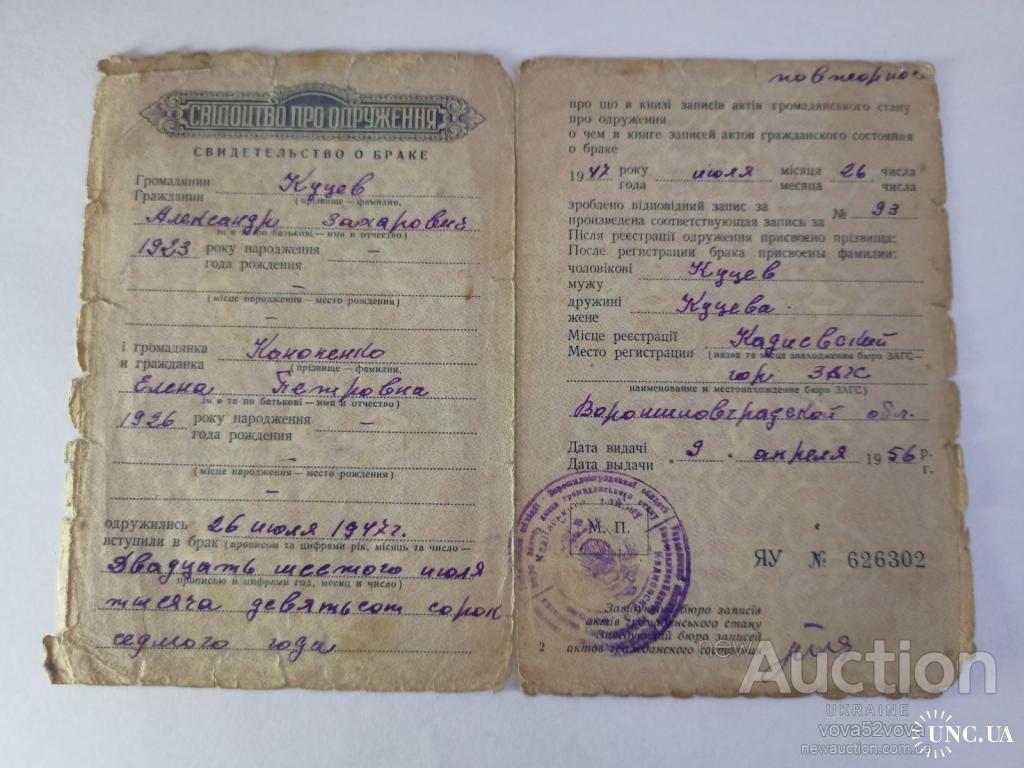 СВІДОЦТВО ПРО ОДРУЖЕННЯ
СВИДЕТЕЛЬСТВО О БРАКЕ
Громадянин
Гражданин
Куцев
(прізвище — фамилия,
Александр Захарович
ім'я та по батькові — имя и отчество)
1923 року народження —
года рождения
—
(місце народження — место рождения)
—
і громадянка
и гражданка
Кононенко
(прізвище — фамилия,
Елена Петровна
ім'я та по батькові — имя и отчество)
1926 року народження —
года рождения
—
(місце народження — место рождения)
—
одружились
вступили в брак
26 июля 1947г.
(прописом та цифрами рік, місяць та число —
Двадцать шестого июля
прописью и цифрами год, месяц и число)
тысяча девятьсот сорок
седмого года
повторное
про що в книзі записів актів громадянського стану
про одруження
о чем в книге записей актов гражданского состояния
о браке
1947 року июля місяця 26 числа
года месяца числа
зроблено відповідний запис за
произведена соответствующая запись за
№ 93
Після реєстрації одруження присвоєно прізвища:
После регистрации брака присвоены фамилии:
чоловікові
мужу
Куцев
дружині
жене
Куцева.
Місце реєстрації
Место регистрации
Кадиевский
(назва та місце знаходження бюро ЗАГС—
гор ЗАГС
наименование и местонахождение бюро ЗАГС)
Ворошиловградской обл.
Дата видачі
Дата выдачи
9 апреля 1956 р.
г.
М. П.
ЯУ № 626302
Завідуючий бюро записів
актів громадянського стану
Заведующий бюро записей
актов гражданского состояния
2
newAuction
UKRAINE
vova52vova
newauction.com.ua
UNC.UA